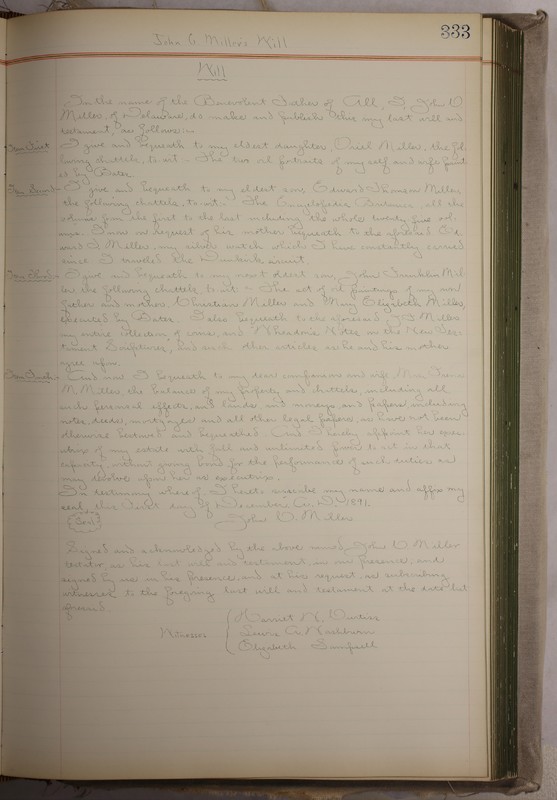 333
John C. Miller's Will
Will
In the name of the Benevolent Father of All, I, John V
Miller, of Delaware, do make and publish this my last will and
testament, as follows:-
Item First- I give and bequeath to my eldest daughter, Miller, the fol
lowing chattels, to wit - The two oil portraits of my self and wife
ed by
Item Second- I give and bequeath to my eldest son, Edward Thomson Miller
the following chattels, to wit:- The Encyclopedia Britannica, all the
from the first to the last including the whole twenty five vol-
umes. I now on request of his mother bequeath to the aforesaid Ed-
ward T. Miller, my silver watch which I have constantly carried
since I traveled the circuit.
Item Third- I give and bequeath to my next oldest son, John Franklin Mil
ler the following chattels, to wit:- The set of oil paintings of my own
father and mother, Christian Miller and Mary Elizabeth Miller,
executed by I also bequeath to the aforesaid, J. F. Miller
my entire collection of coins, and "Whedon's Notes on the New Tes-
tament Scriptures", and such other articles as he and his mother
agree upon.
Item Fourth- And now I bequeath to my dear companion and wife, Mrs.
M. Miller, the balance of my property and chattels, including all
such personal effects, and lands, and moneys, and papers, including
notes, deeds, mortgages and all other legal papers, as have not been
otherwise bestowed and bequeathed. And I hereby appoint her exec-
utrix of my estate with full and unlimited power to act in that
capacity without giving bond for the performance of such duties as
may devolve upon her as executrix.
In testimony whereof I hereto subscribe my name and affix my
seal, this first day of December, A. D. 1891.
Seal John V. Miller
Signed and acknowledged by the above named John V Miller
testator, as his last will and testament, in our presence, and
signed by us in his presence, and at his request, as subscribing
witnesses to the foregoing last will and testament at the date last
aforesaid.
Witnesses Harriet N. Curtiss
Lewis A. Washburn
Elizabeth Sampsell